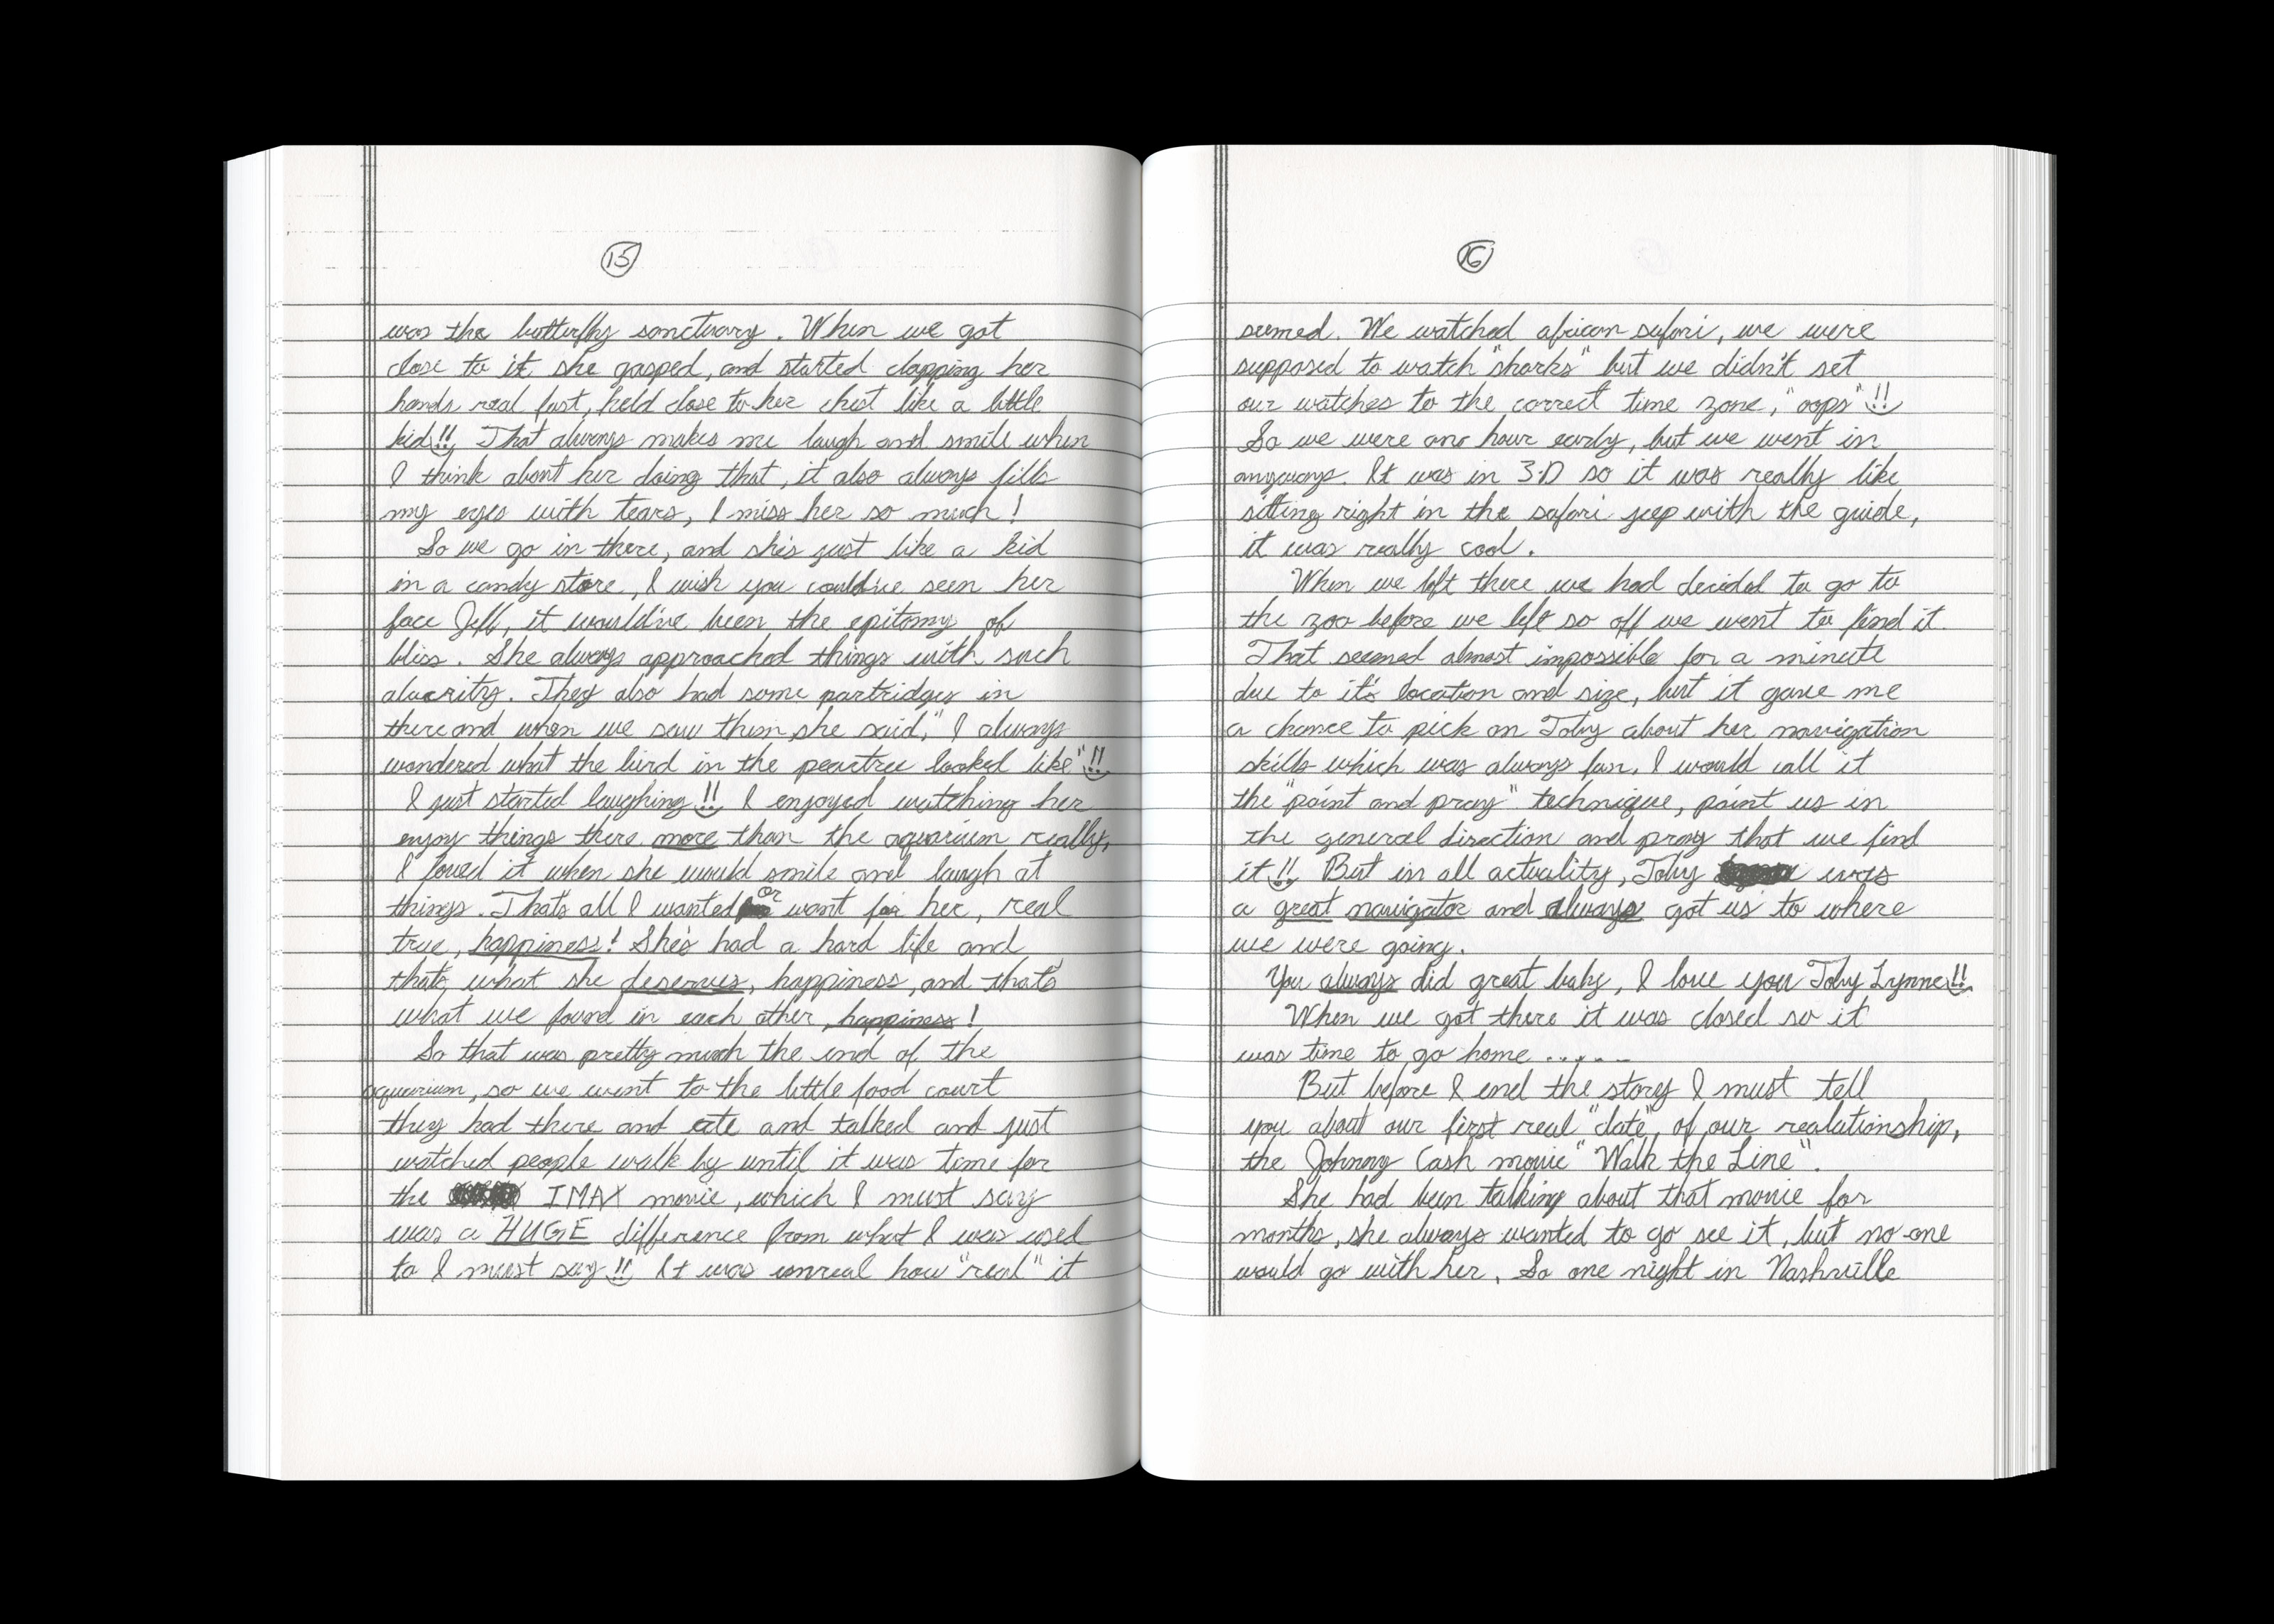 15
was the butterfly sanctuary. When we got
close to it, she gasped, and started clapping her
hands real fast, held close to her chest like a little
kid!! That always makes me laugh and smile when
I think about her doing that, it also always fills
my eyes with tears, I miss her so much!
So we go in there, and she's just like a kid
in a candy store, I wish you could've seen her
face Jeff, it would've been the epitomy of
bliss. She always approached things with such
alacrity. They also had some partridges in
there and when we saw them, she said, "I always
wondered what the bird in the peartree looked like"!!
I just started laughing!! I enjoyed watching her
enjoy things there more than the aquarium really,
I loved it when she would smile and laugh at
things. That's all I wanted or want for her, real
true, happiness! She's had a hard life and
that's what she deserves, happiness, and that's
what we found in each other, happiness!
So that was pretty much the end of the
aquarium, so we went to the little food court
they had there and ate and talked and just
watched people walk by until it was time for
the IMAX movie, which I must say
was a HUGE difference from what I was used
to I must say!! It was unreal how "real" it
16
seemed. We watched african safari, we were
supposed to watch "sharks" but we didn't set
our watches to the correct time zone, "oops"!!
So we were one hour early, but we went in
anyways. It was in 3-D so it was really like
sitting right in the safari jeep with the guide,
it was really cool.
When we left there we had decided to go to
the zoo before we left so off we went to find it.
That seemed almost impossible for a minute
due to it's location and size, but it gave me
a chance to pick on Toby about her navigation
skills which was always fun. I would call it
the "point and pray" technique, point us in
the general direction and pray that we find
it!! But in all actuality, Toby was
a great navigator and always got us to where
we were going.
You always did great baby, I love you Toby Lynne!!
When we got there it was closed so it
was time to go home ......
But before I end the story I must tell
you about our first real "date", of our realationship,
the Johnny Cash movie "Walk the Line".
She had been talking about that movie for
months, she always wanted to go see it, but no-one
would go with her. So one night in Nashville